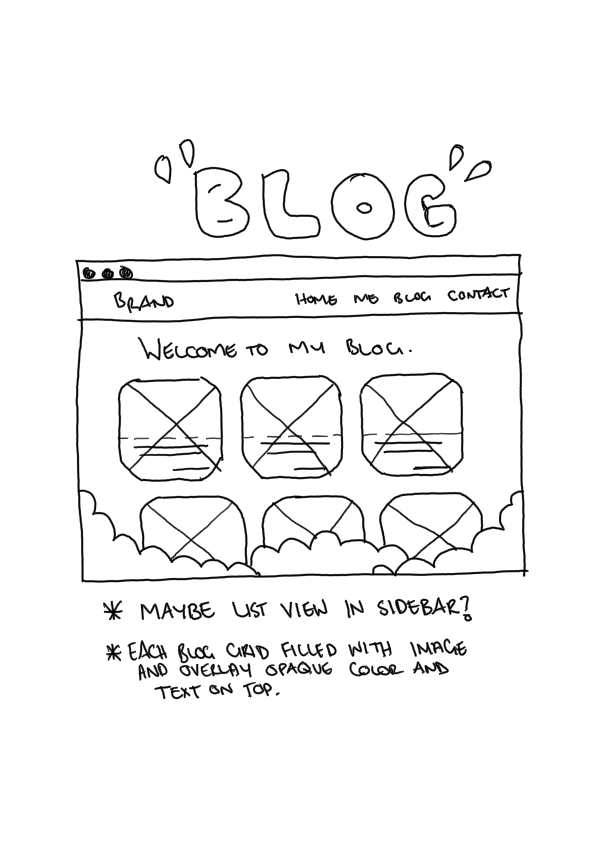 BLOG
BRAND HOME ME BLOG CONTACT
WELCOME TO MY BLOG.
* MAYBE LIST VIEW IN SIDEBAR?
* EACH BLOG GRID FILLED WITH IMAGE
AND OVERLAY OPAQUE COLOR AND
TEXT ON TOP.